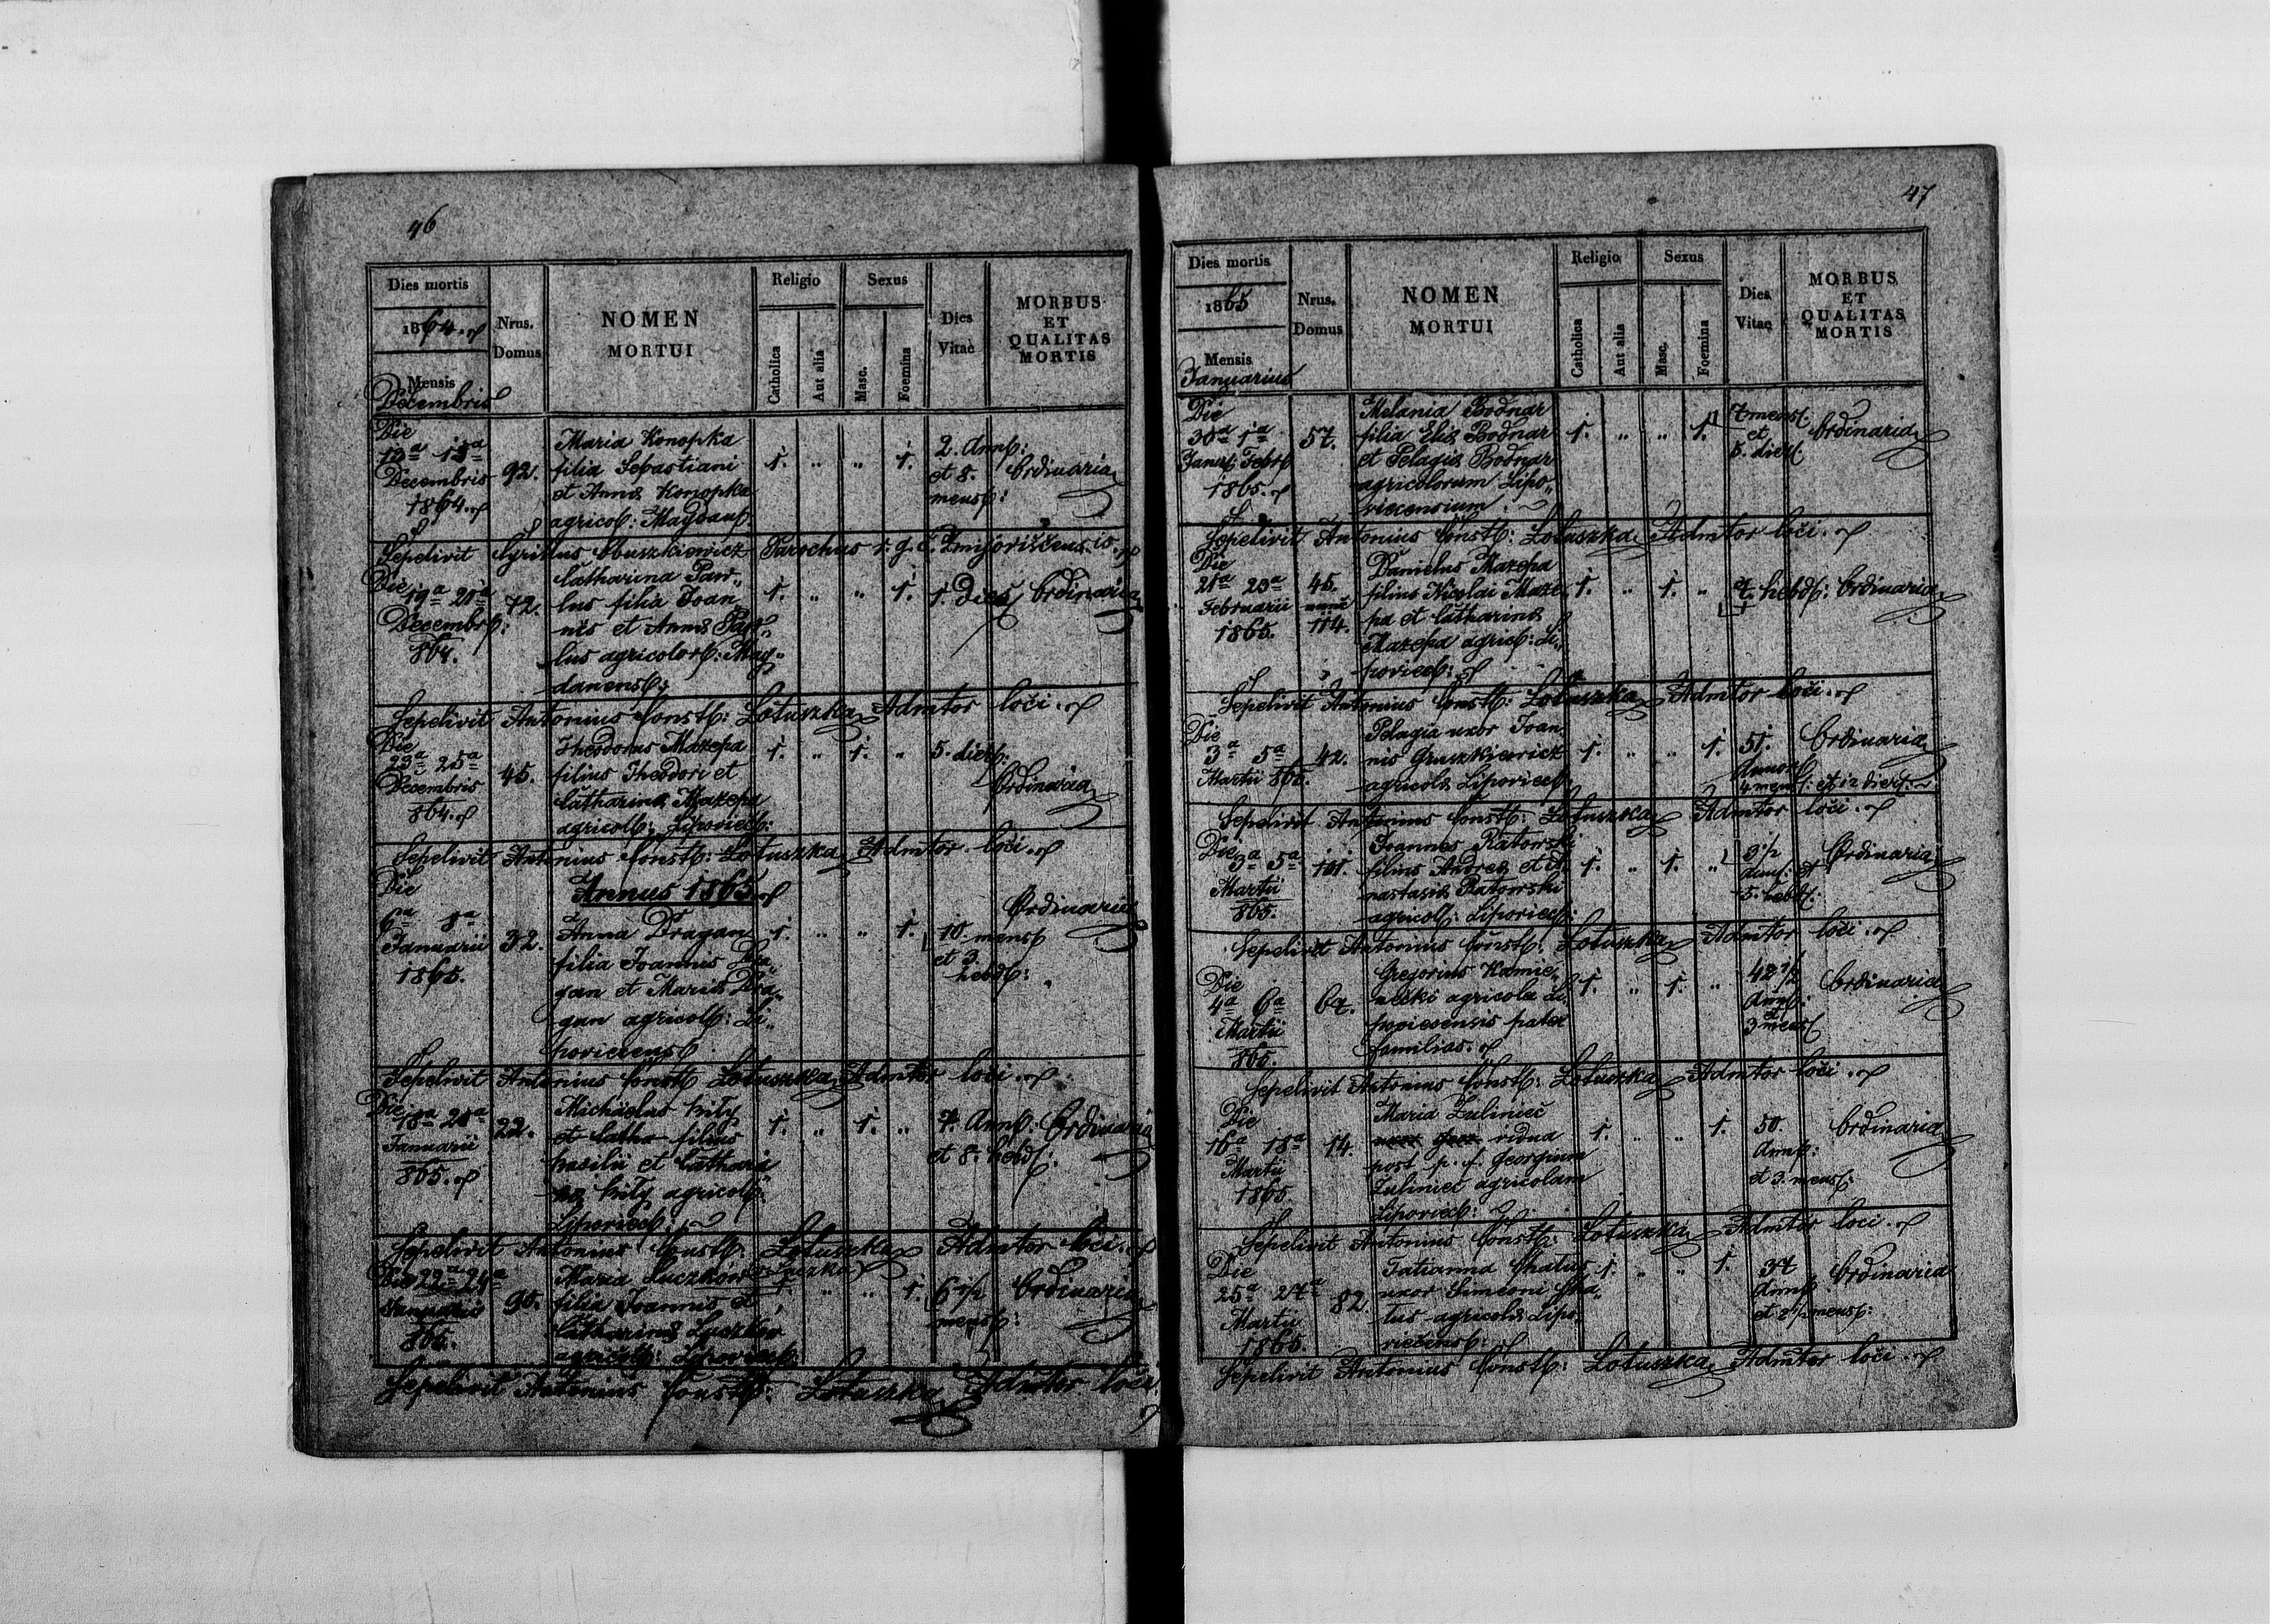 46
Dies mortis
1864.
Mensis
Decembris
Nrus.
Domus
NOMEN
MORTUI
Religio
Catholica
Aut alia
Sexus
Masc.
Foemina
Dies
Vitae
MORBUS
ET
QUALITAS
MORTIS
Die
13a 15a
Decembris
1864.
92.
Maria Konopka
filia Sebastiani
et Annæ Konopka
agricol: Maydan
1. " " 1.
2. Ann:
et 8.
mens:
Ordinaria
Sepelivit Cyrillus Parochus r. g. c.
Die
19a 21a
Decembr:
864.
72.
Catharina Paw„
lus filia Joan„
nis et Annæ Paw„
lus agricolor: May„
danens:
1. " " 1.
1. Dies
Ordinaria
Sepelivit Antonius Const: Lotuszka Admtor loci.
Die
23a 25a
Decembris
864.
45.
Theodorus Mazepa
filius Theodori et
Catharinæ Mazepa
agricoll: Lipoviec:
1. " 1. "
5. dier:
Ordinaria
Sepelivit Antonius Const: Lotuszka Admtor loci.
Annus 1865
Die
6a 8a
Januarii
1865.
32.
Anna Dragan
filia Joannis Dra„
gan et Mariæ Dra„
gan agricoll: Li„
poviecens
1. " " 1.
10 mens
et 3.
hebd:
Ordinaria
Sepelivit Antonius Const: Lotuszka Admtor loci.
Die
18a 20a
Januarii
865.
22.
Michaelus
et Cath filius
Basilii et Cathari„
næ agricoll:
Lipoviec:
1. " 1. "
7. Ann:
et 8. hebd:
Ordinaria
Sepelivit Antonius Const: Lotuszka Admtor loci.
Die 22a 24a
Januarii
865.
90.
Maria Luczków
filia Joannis et
Catharinæ
agricoll: Lipoviec:
1. " " 1.
6 1/2
mens:
Ordinaria
Sepelivit Antonius Const: Lotuszka Admtor loci.
47
Dies mortis
1865
Mensis
Januarius
Nrus.
Domus
NOMEN
MORTUI
Religio
Catholica
Aut alia
Sexus
Masc.
Foemina
Dies
Vitae
MORBUS
ET
QUALITAS
MORTIS
Die
30a 1a
Janu: Febr:
1865.
57.
Melania Bodnar
filia Eliæ Bodnar
et Pelagiæ Bodnar
agricolorum Lipo„
viecensium
1. " " 1.
7 mens:
et
5. dier:
Ordinaria
Sepelivit Antonius Const: Lotuszka Admtor loci.
Die
21a 23a
Februarii
1865.
45.
nunc
114.
Danielus Mazepa
filius Nicolai Maze„
pa et Catharinæ
Mazepa agric: Li„
poviec:
1. " 1. "
7. hebd:
Ordinaria
Sepelivit Antonius Const: Lotuszka Admtor loci.
Die
3a 5a
Martii 865.
42.
Pelagia uxor Joan„
nis Gruszkiewicz
agricolæ Lipoviec:
1. " " 1.
51.
Annor:
4 mens: et 12 dier:
Ordinaria
Sepelivit Antonius Const: Lotuszka Admtor loci.
Die
3a 5a
Martii
865.
101.
Joannes Ratowski
filius Andreæ et A„
nastasiæ Ratowski
agricoll: Lipoviec:
1. " 1. "
3 1/2
Ann: et
5. hebd:
Ordinaria
Sepelivit Antonius Const: Lotuszka Admtor loci.
Die
4a 6a
Martii
865.
Gregorius Kamie„
necki agricola Li„
poviecensis pater
familias.
1. " 1. "
42 1/2
Ann:
et
3 mens
Ordinaria
Sepelivit Antonius Const: Lotuszka Admtor loci.
Die
16a 18a
Martii
1865
14.
Maria Zuliniec
vidua
post p. f. Georgium
Zuliniec agricolam
Lipoviec:
1. " " 1.
50.
Ann:
et 3. mens:
Ordinaria
Sepelivit Antonius Const: Lotuszka Admtor loci.
Die
25a 27a
Martii
1865.
82.
Tatianna Chatus
uxor Simeoni Cha„
tus agricolæ Lipo„
viecens:
1. " " 1.
37
Ann:
et 2 1/2 mens:
Ordinaria
Sepelivit Antonius Const: Lotuszka Admtor loci.